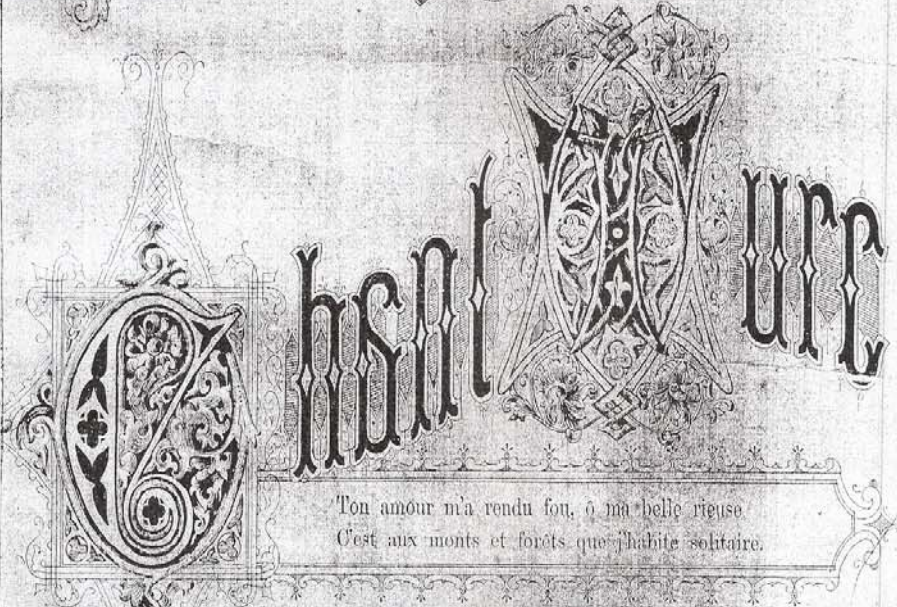 Chant Turc
Ton amour m'a rendu fou, ô ma belle rieuse
C'est aux monts et forêts que j'habite solitaire.